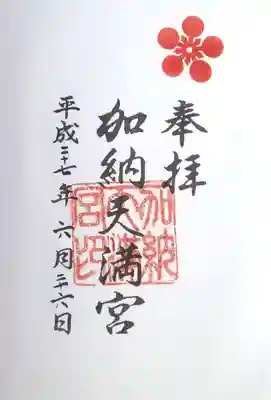 奉拝
加納天満宮
加納天満宮印
平成二十七年 六月二十六日